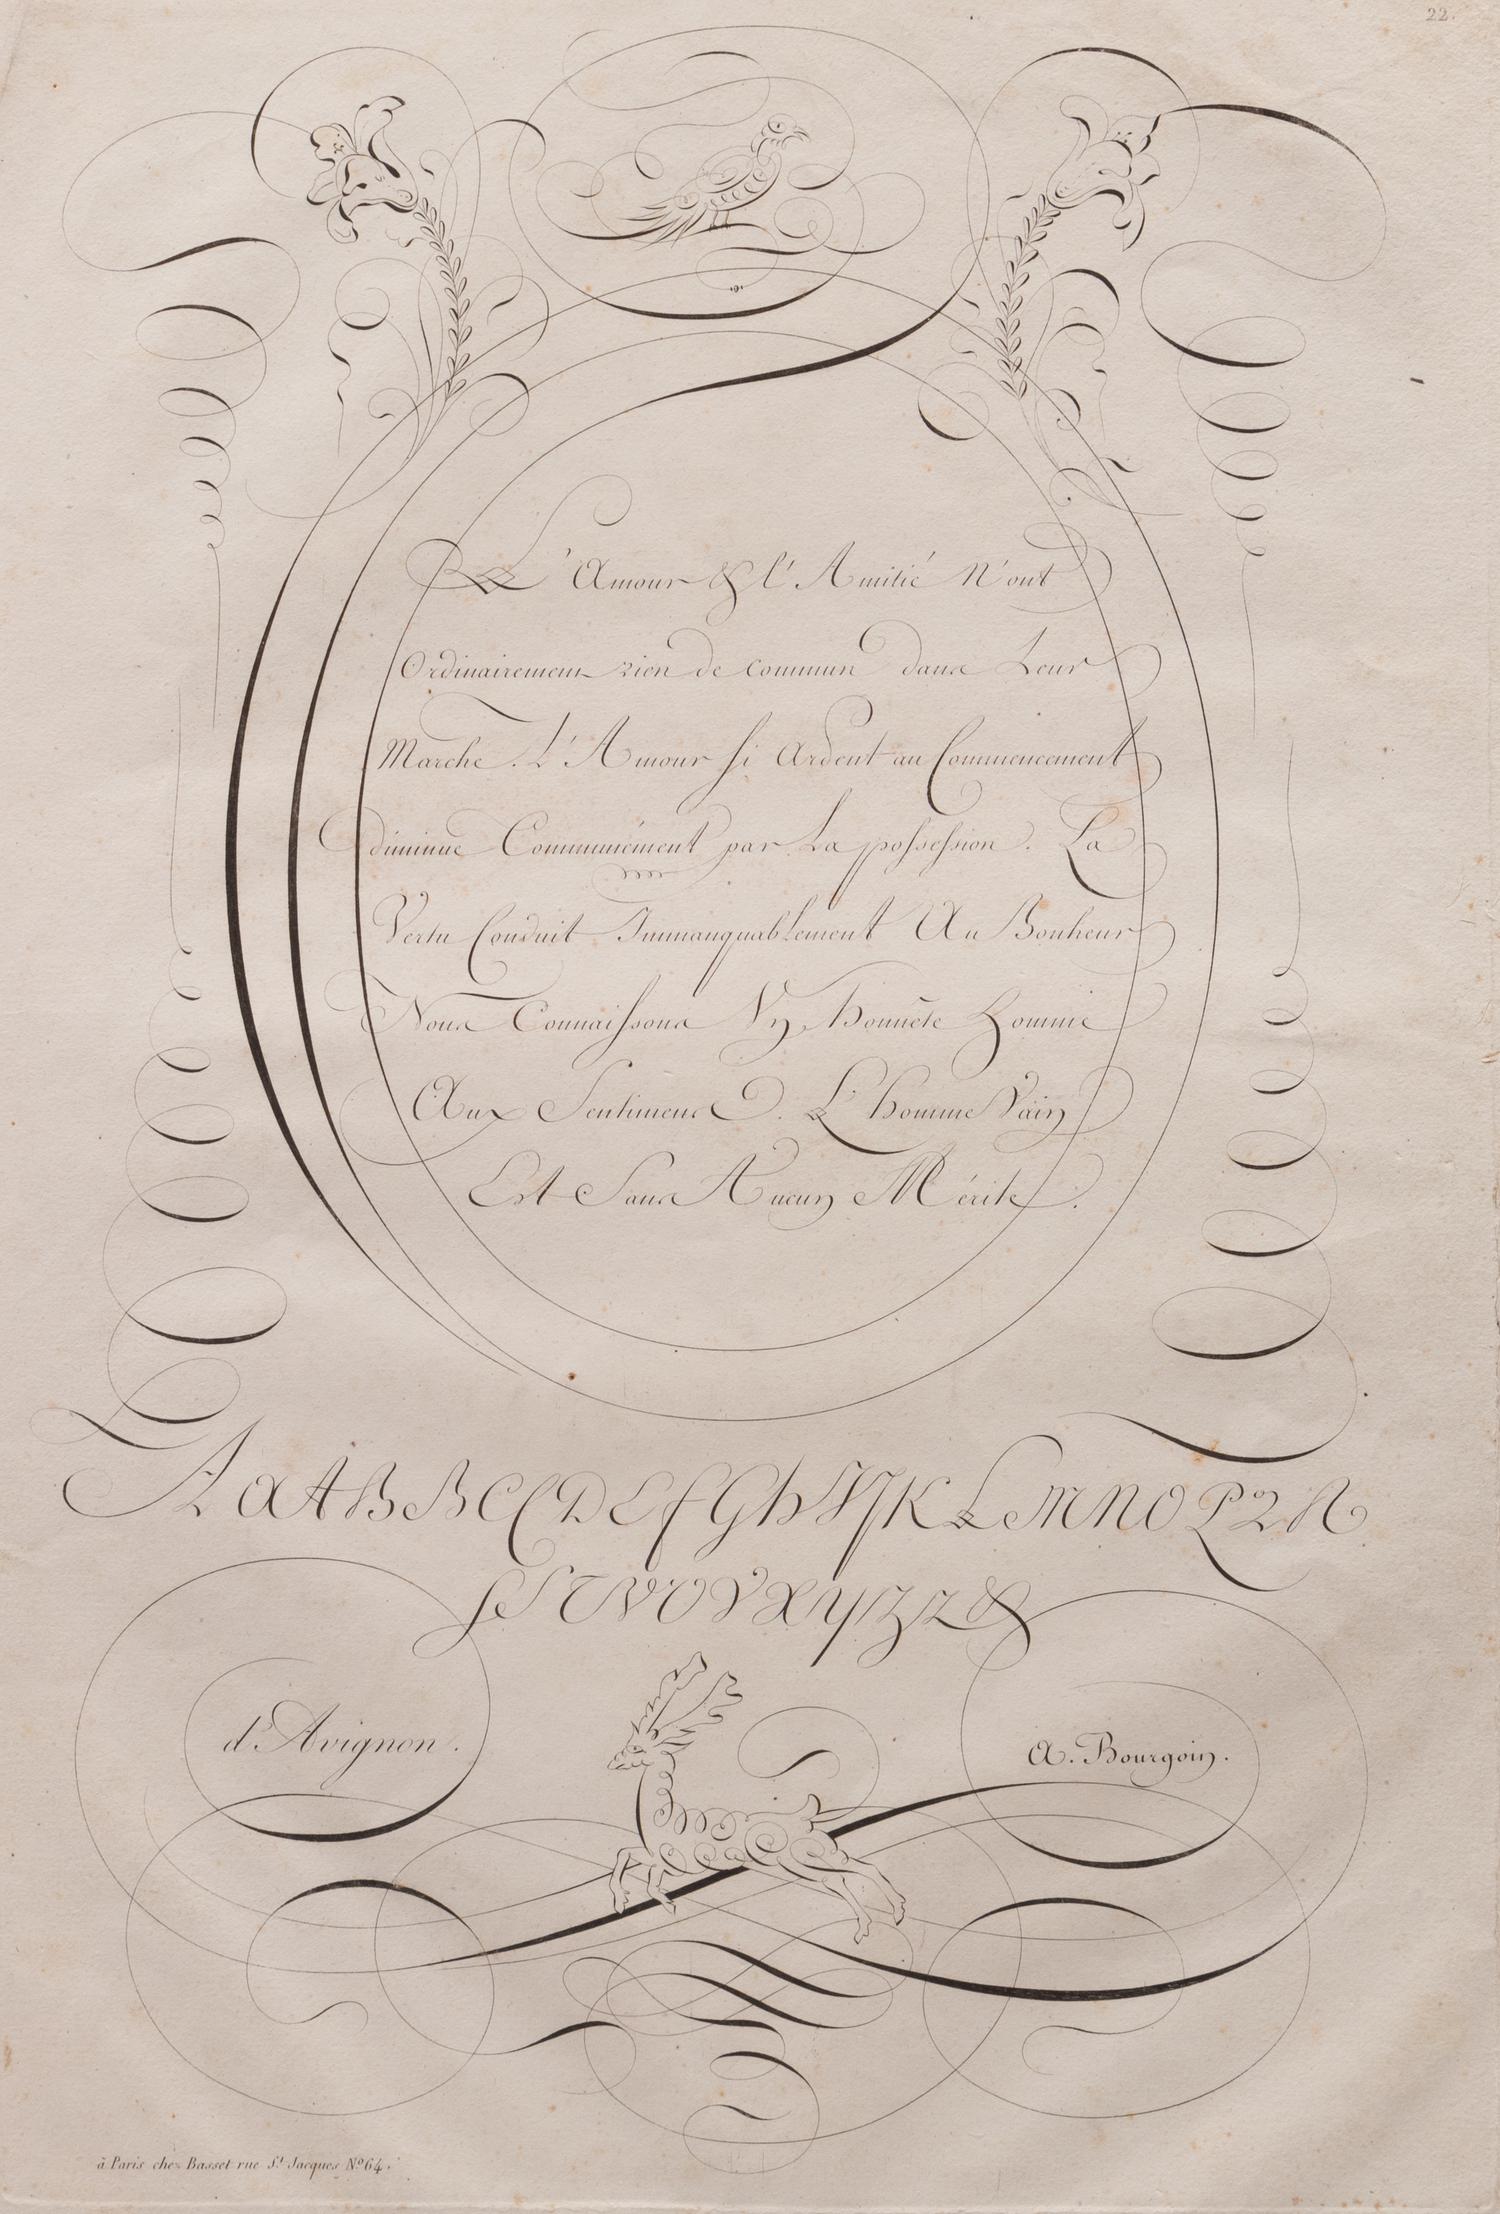 22.
L'Amour & l'Amitié N'ont
Ordinairement rien de commun dans Leur
Marche. L'Amour si Ardent au Commencement
diminue Communément par La possession. La
Vertu Conduit Immanquablement Au Bonheur
Nous Connaissons Un honnête homme
Aux Sentimens. L'homme Vain
Est Sans Aucun Mérite.
A a A B B C C D E f G h I J K L M N O P Q R
S S T V U V X Y Z Z &
d'Avignon.
A. Bourgoin.
à Paris chez Basset rue St. Jacques No. 64.